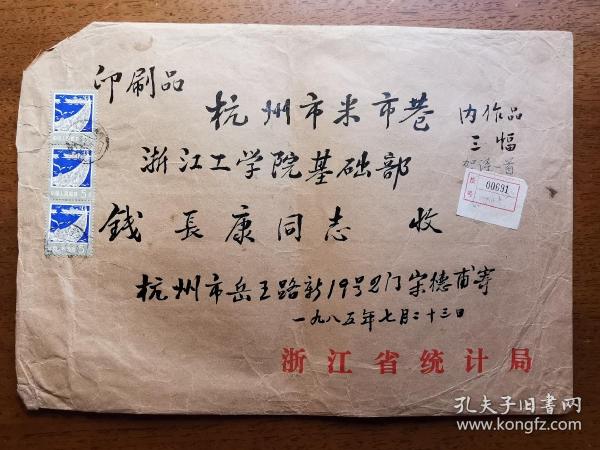 印刷品
杭州市米市巷
内作品
三幅
贺诗一首
浙江工学院基础部
00691
錢長康同志 收
杭州市岳王路新19号2门宋德甫寄
一九八五年七月二十三日
浙江省统计局
孔夫子旧书网
www.kongfz.com